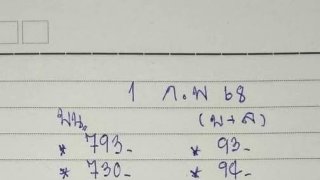 1 ก.พ 68
พน. (บ+ล)
* 793- * 93-
* 730- * 94-